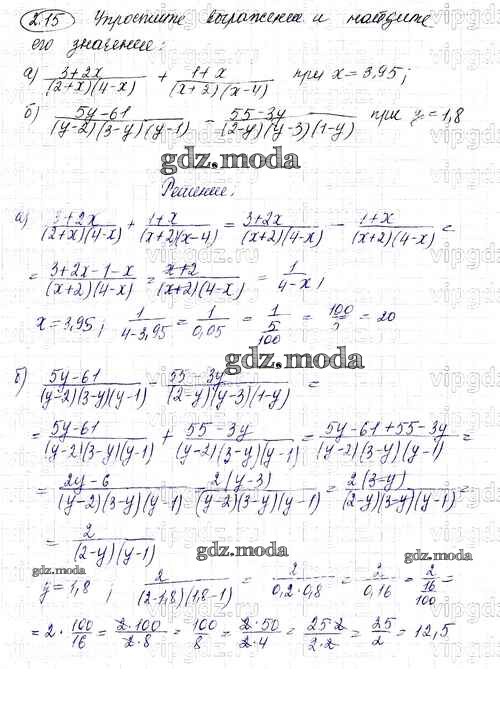 2.15 Упростите выражение и найдите
его значение:
а) \frac{3+2x}{(2+x)(4-x)} + \frac{1+x}{(x+2)(x-4)} при x=3,95;
б) \frac{5y-61}{(y-2)(3-y)(y-1)} - \frac{55-3y}{(2-y)(y-3)(1-y)} при y=1,8
gdz.moda
Решение.
а) \frac{3+2x}{(2+x)(4-x)} + \frac{1+x}{(x+2)(x-4)} = \frac{3+2x}{(x+2)(4-x)} - \frac{1+x}{(x+2)(4-x)} =
= \frac{3+2x-1-x}{(x+2)(4-x)} = \frac{x+2}{(x+2)(4-x)} = \frac{1}{4-x},
x=3,95; \frac{1}{4-3,95} = \frac{1}{0,05} = \frac{1}{\frac{5}{100}} = \frac{100}{5} = 20
gdz.moda
б) \frac{5y-61}{(y-2)(3-y)(y-1)} - \frac{55-3y}{(2-y)(y-3)(1-y)} =
= \frac{5y-61}{(y-2)(3-y)(y-1)} + \frac{55-3y}{(y-2)(3-y)(y-1)} = \frac{5y-61+55-3y}{(y-2)(3-y)(y-1)} =
= \frac{2y-6}{(y-2)(3-y)(y-1)} = \frac{2(y-3)}{(y-2)(3-y)(y-1)} = \frac{2(3-y)}{(2-y)(3-y)(y-1)} =
= \frac{2}{(2-y)(y-1)}
gdz.moda
gdz.moda
gdz.moda
y=1,8; \frac{2}{(2-1,8)(1,8-1)} = \frac{2}{0,2·0,8} = \frac{2}{0,16} = \frac{2}{\frac{16}{100}} =
= 2·\frac{100}{16} = \frac{2·100}{2·8} = \frac{100}{8} = \frac{2·50}{2·4} = \frac{25·2}{2·2} = \frac{25}{2} = 12,5
gdz.moda